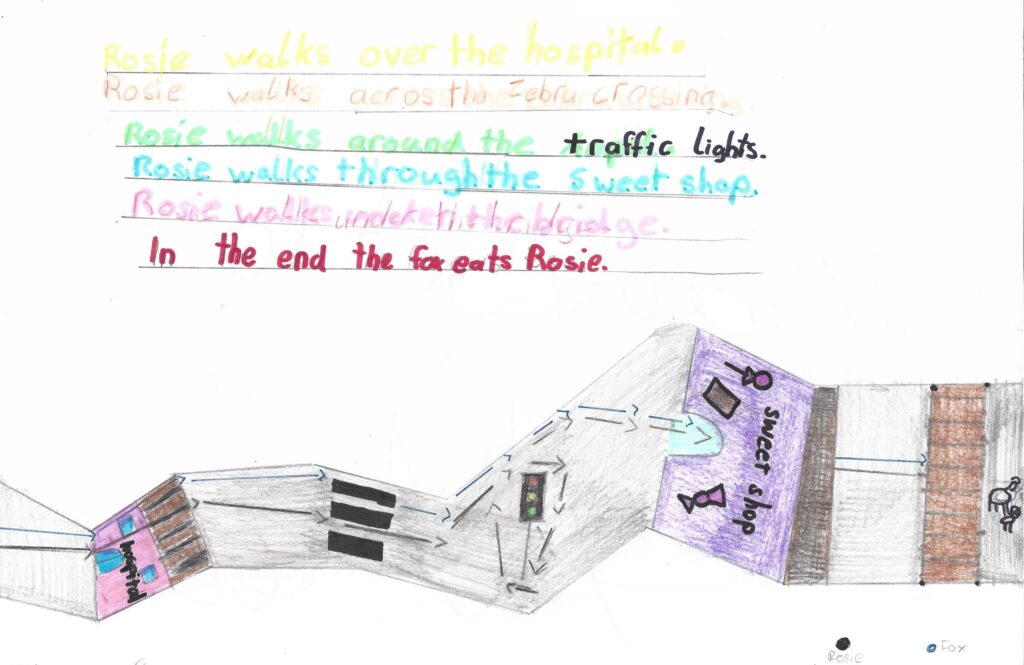 Rosie walks over the hospital.
Rosie walks across the Zebra crossing.
Rosie walks around the traffic lights.
Rosie walks through the sweet shop.
Rosie walks under the bridge.
In the end the fox eats Rosie.
hospital
sweet shop
Rosie
Fox